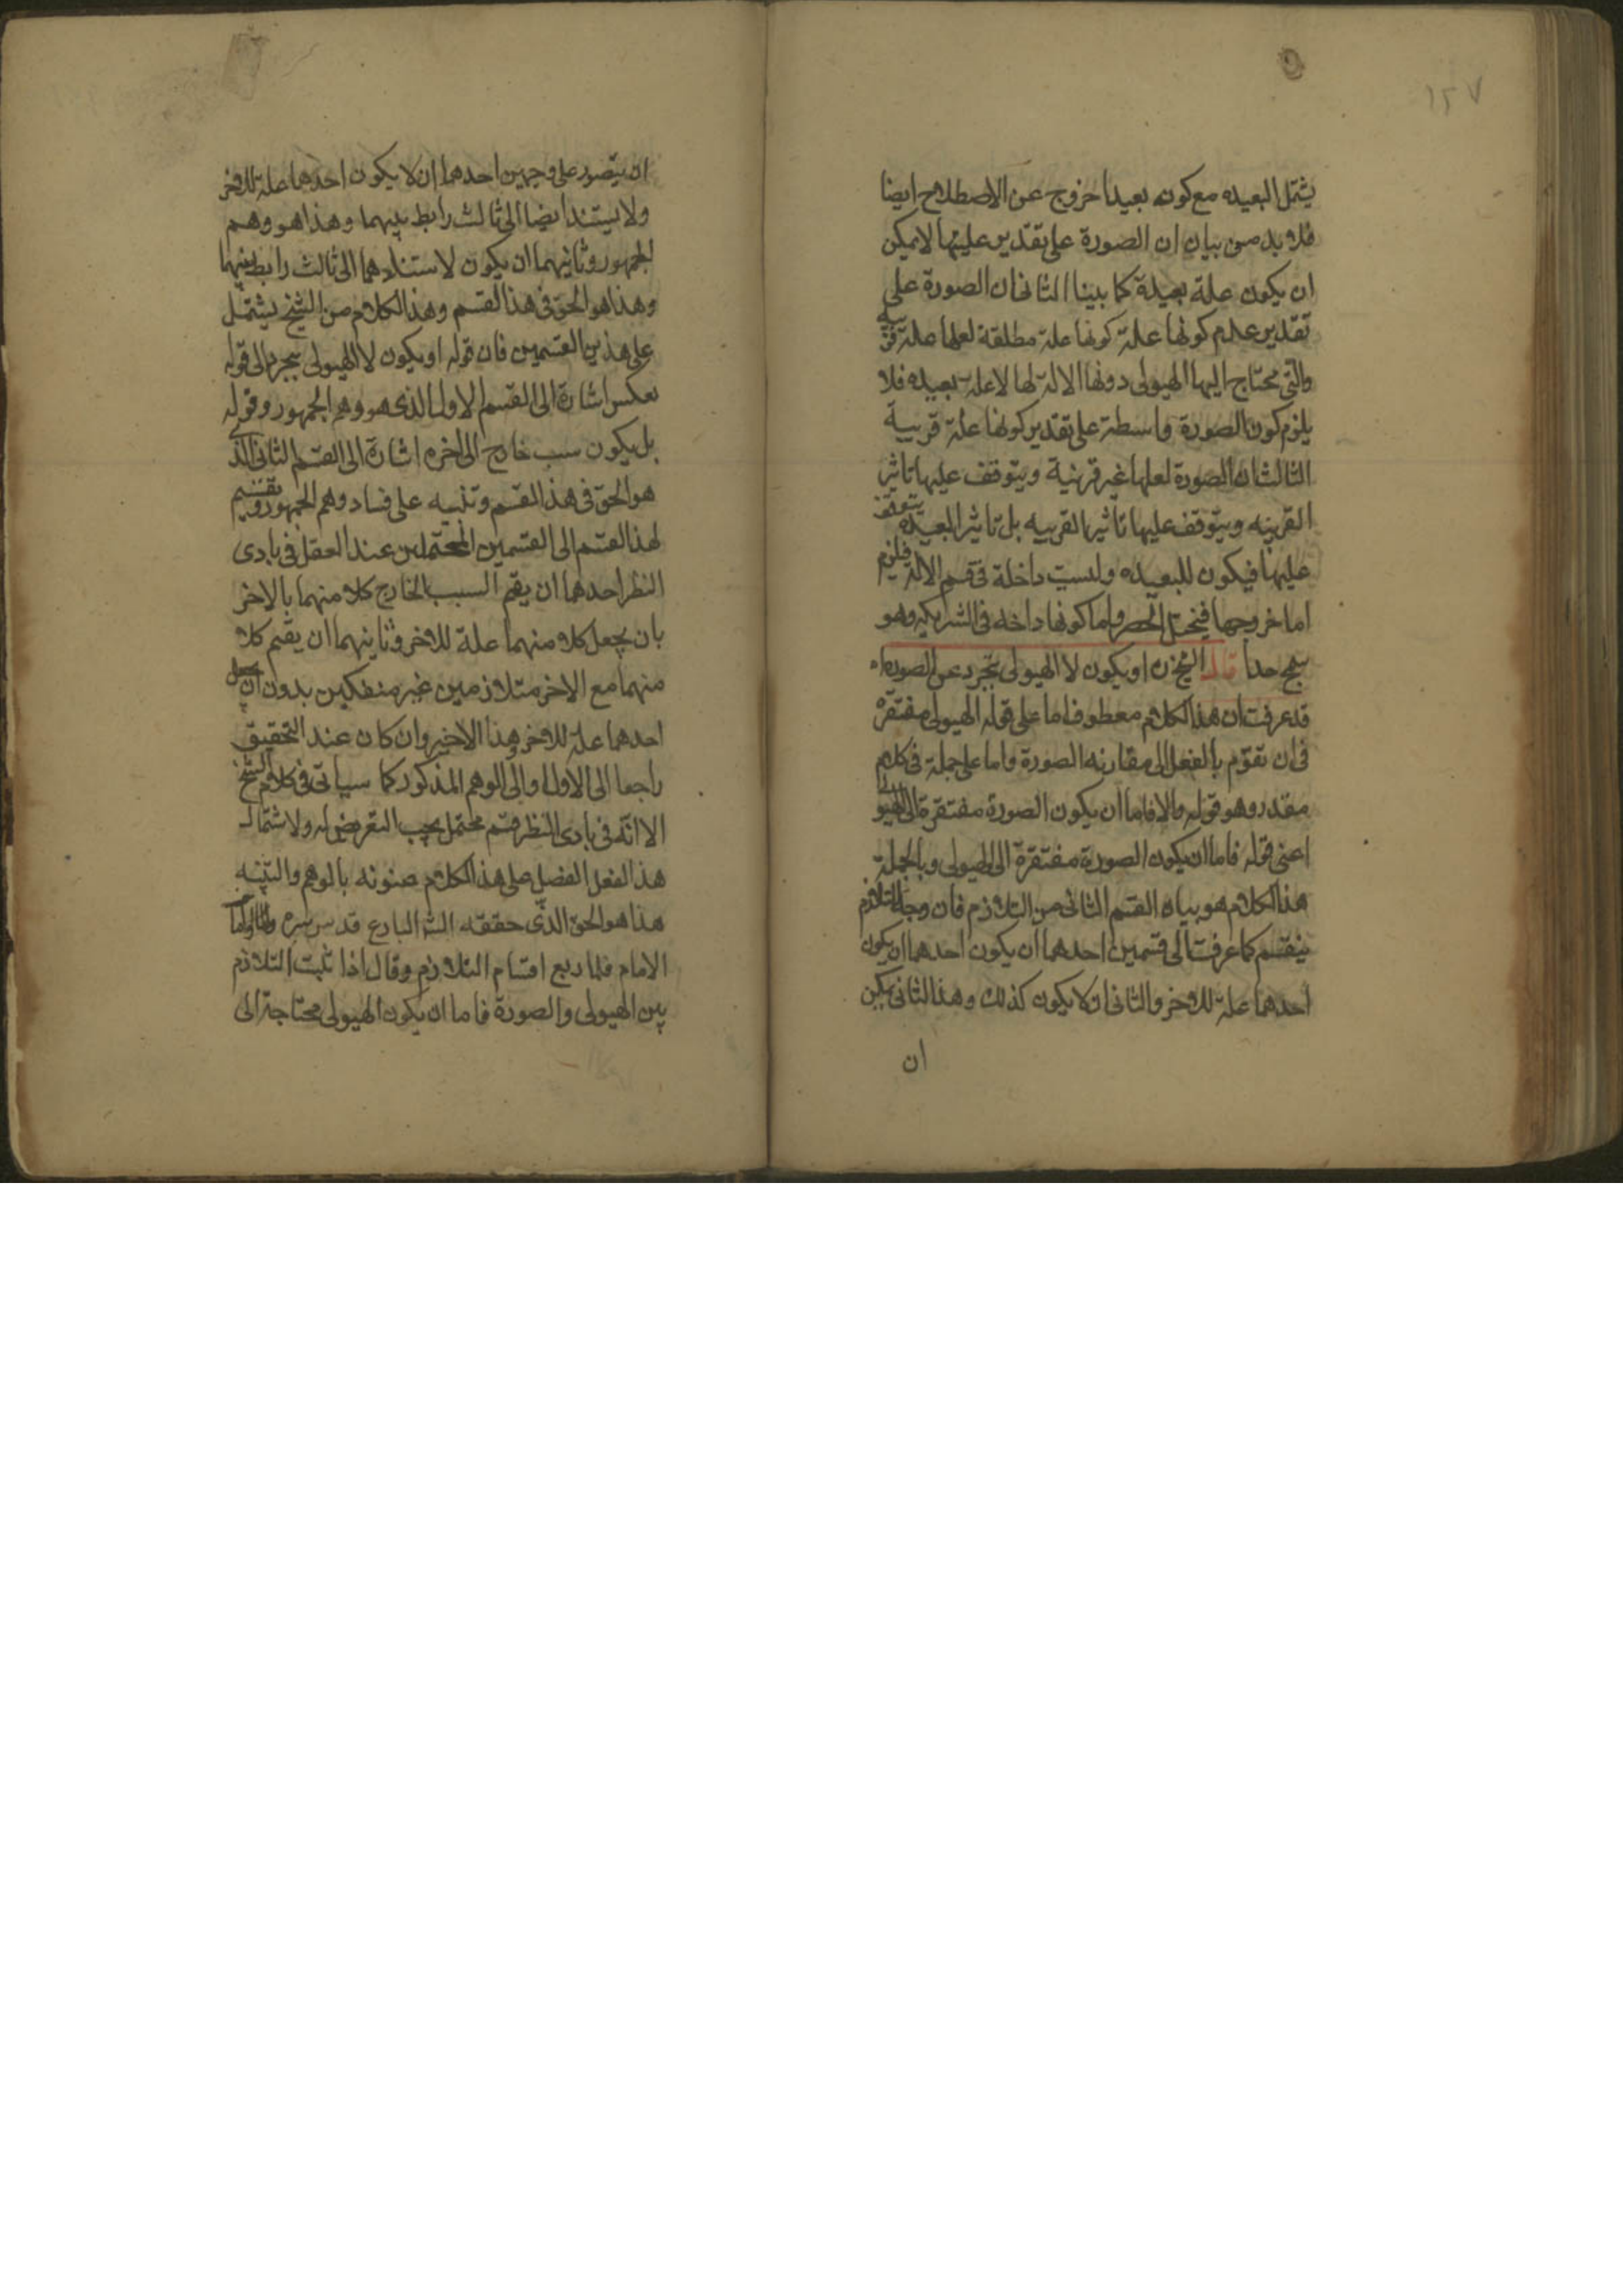 ١٢٧
يشتمل البعيده مع كونه بعيدا خروج عن الاصطلاح ايضا
فلا بد من بيان ان الصورة على تقدير عليتها لا يمكن
ان يكون علة بعيدة كما بينا الثانى ان الصورة على
تقدير عدم كونها علة كونها علة مطلقة لعلها علة قريبة
والتى يحتاج اليها الهيولى دونها الالة لها لا علة بعيده فلا
يلزم كون الصورة واسطة على تقدير كونها علة قريبة
الثالث ان الصورة لعلها غير قرينية ويتوقف عليها تاثير
القرينه ويتوقف عليها تاثير القريبه بل تاثير البعيده يتوقف
عليها فيكون للبعيده وليست داخلة فى قسم الالة فيلزم
اما خروجها فيختل الحصر واما كونها داخله فى الشريكه وهو
سمج جدا قال الشيخ ره او يكون لا الهيولى تجرد عن الصورة اه
قد عرفت ان هذا الكلام معطوف اما على قوله الهيولى مفتقرة
فى ان تقوم بالفعل الى مقارنه الصورة واما على جملة فى كلام
مقدر وهو قوله والا فاما ان يكون الصورة مفتقرة الى الهيولى
اعنى قوله فاما ان يكون الصورة مفتقرة الى الهيولى وبالجملة
هذا الكلام هو بيان القسم الثانى من التلازم فان وجه التلازم
ينقسم كما عرفت الى قسمين احدهما ان يكون احدهما ان يكون
احدهما علة للاخر والثانى ان لا يكون كذلك وهذا الثانى يمكن
ان
ان يتصور على وجهين احدهما ان لا يكون احدهما علة للاخر
ولا يستند ايضا الى ثالث رابط بينهما وهذا هو وهم
الجمهور وثانيهما ان يكون لاستنادهما الى ثالث رابط بينهما
وهذا هو الحق فى هذا القسم وهذا الكلام من الشيخ يشتمل
على هذين القسمين فان قوله او يكون لا الهيولى تجرد الى قوله
بعكس اشارة الى القسم الاول الذى هو وهم الجمهور وقوله
بل يكون سبب خارج الى اخره اشارة الى القسم الثانى الذى
هو الحق فى هذا القسم وتنبيه على فساد وهم الجمهور وتقسيم
لهذا القسم الى القسمين المحتملين عند العقل فى بادى
النظر احدهما ان يقيم السبب الخارج كلا منهما بالاخر
بان يجعل كلا منهما علة للاخر وثانيهما ان يقيم كلا
منهما مع الاخر متلازمين غير منفكين بدون ان يجعل
احدهما علة للاخر وهذا الاخير وان كان عند التحقيق
راجعا الى الاول والى الوهم المذكور كما سياتى فى كلام الشيخ
الا انه فى بادى النظر قسم محتمل يجب التعرض له ولاشتمال
هذا الفعل الفصل على هذا الكلام عنونه بالوهم والتنبيه
هذا هو الحق الذى حققه الشه البارع قدس سره واما
الامام فلما ربع اقسام التلازم وقال اذا ثبت التلازم
بين الهيولى والصورة فاما ان يكون الهيولى محتاجة الى